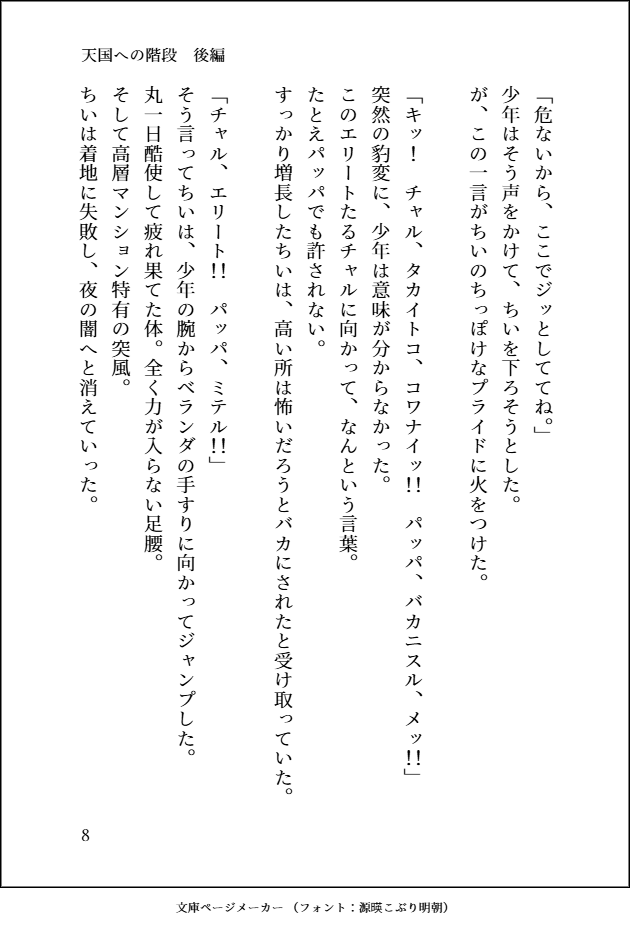 天国への階段　後編
「危ないから、ここでジッとしててね。」
少年はそう声をかけて、ちいを下ろそうとした。
が、この一言がちいのちっぽけなプライドに火をつけた。
「キッ！　チャル、タカイトコ、コワナイッ!!　パッパ、バカニスル、メッ!!」
突然の豹変に、少年は意味が分からなかった。
このエリートたるチャルに向かって、なんという言葉。
たとえパッパでも許されない。
すっかり増長したちいは、高い所は怖いだろうとバカにされたと受け取っていた。
「チャル、エリート!!　パッパ、ミテル!!」
そう言ってちいは、少年の腕からベランダの手すりに向かってジャンプした。
丸一日酷使して疲れ果てた体。全く力が入らない足腰。
そして高層マンション特有の突風。
ちいは着地に失敗し、夜の闇へと消えていった。
8
文庫ページメーカー（フォント：源暎こぶり明朝）